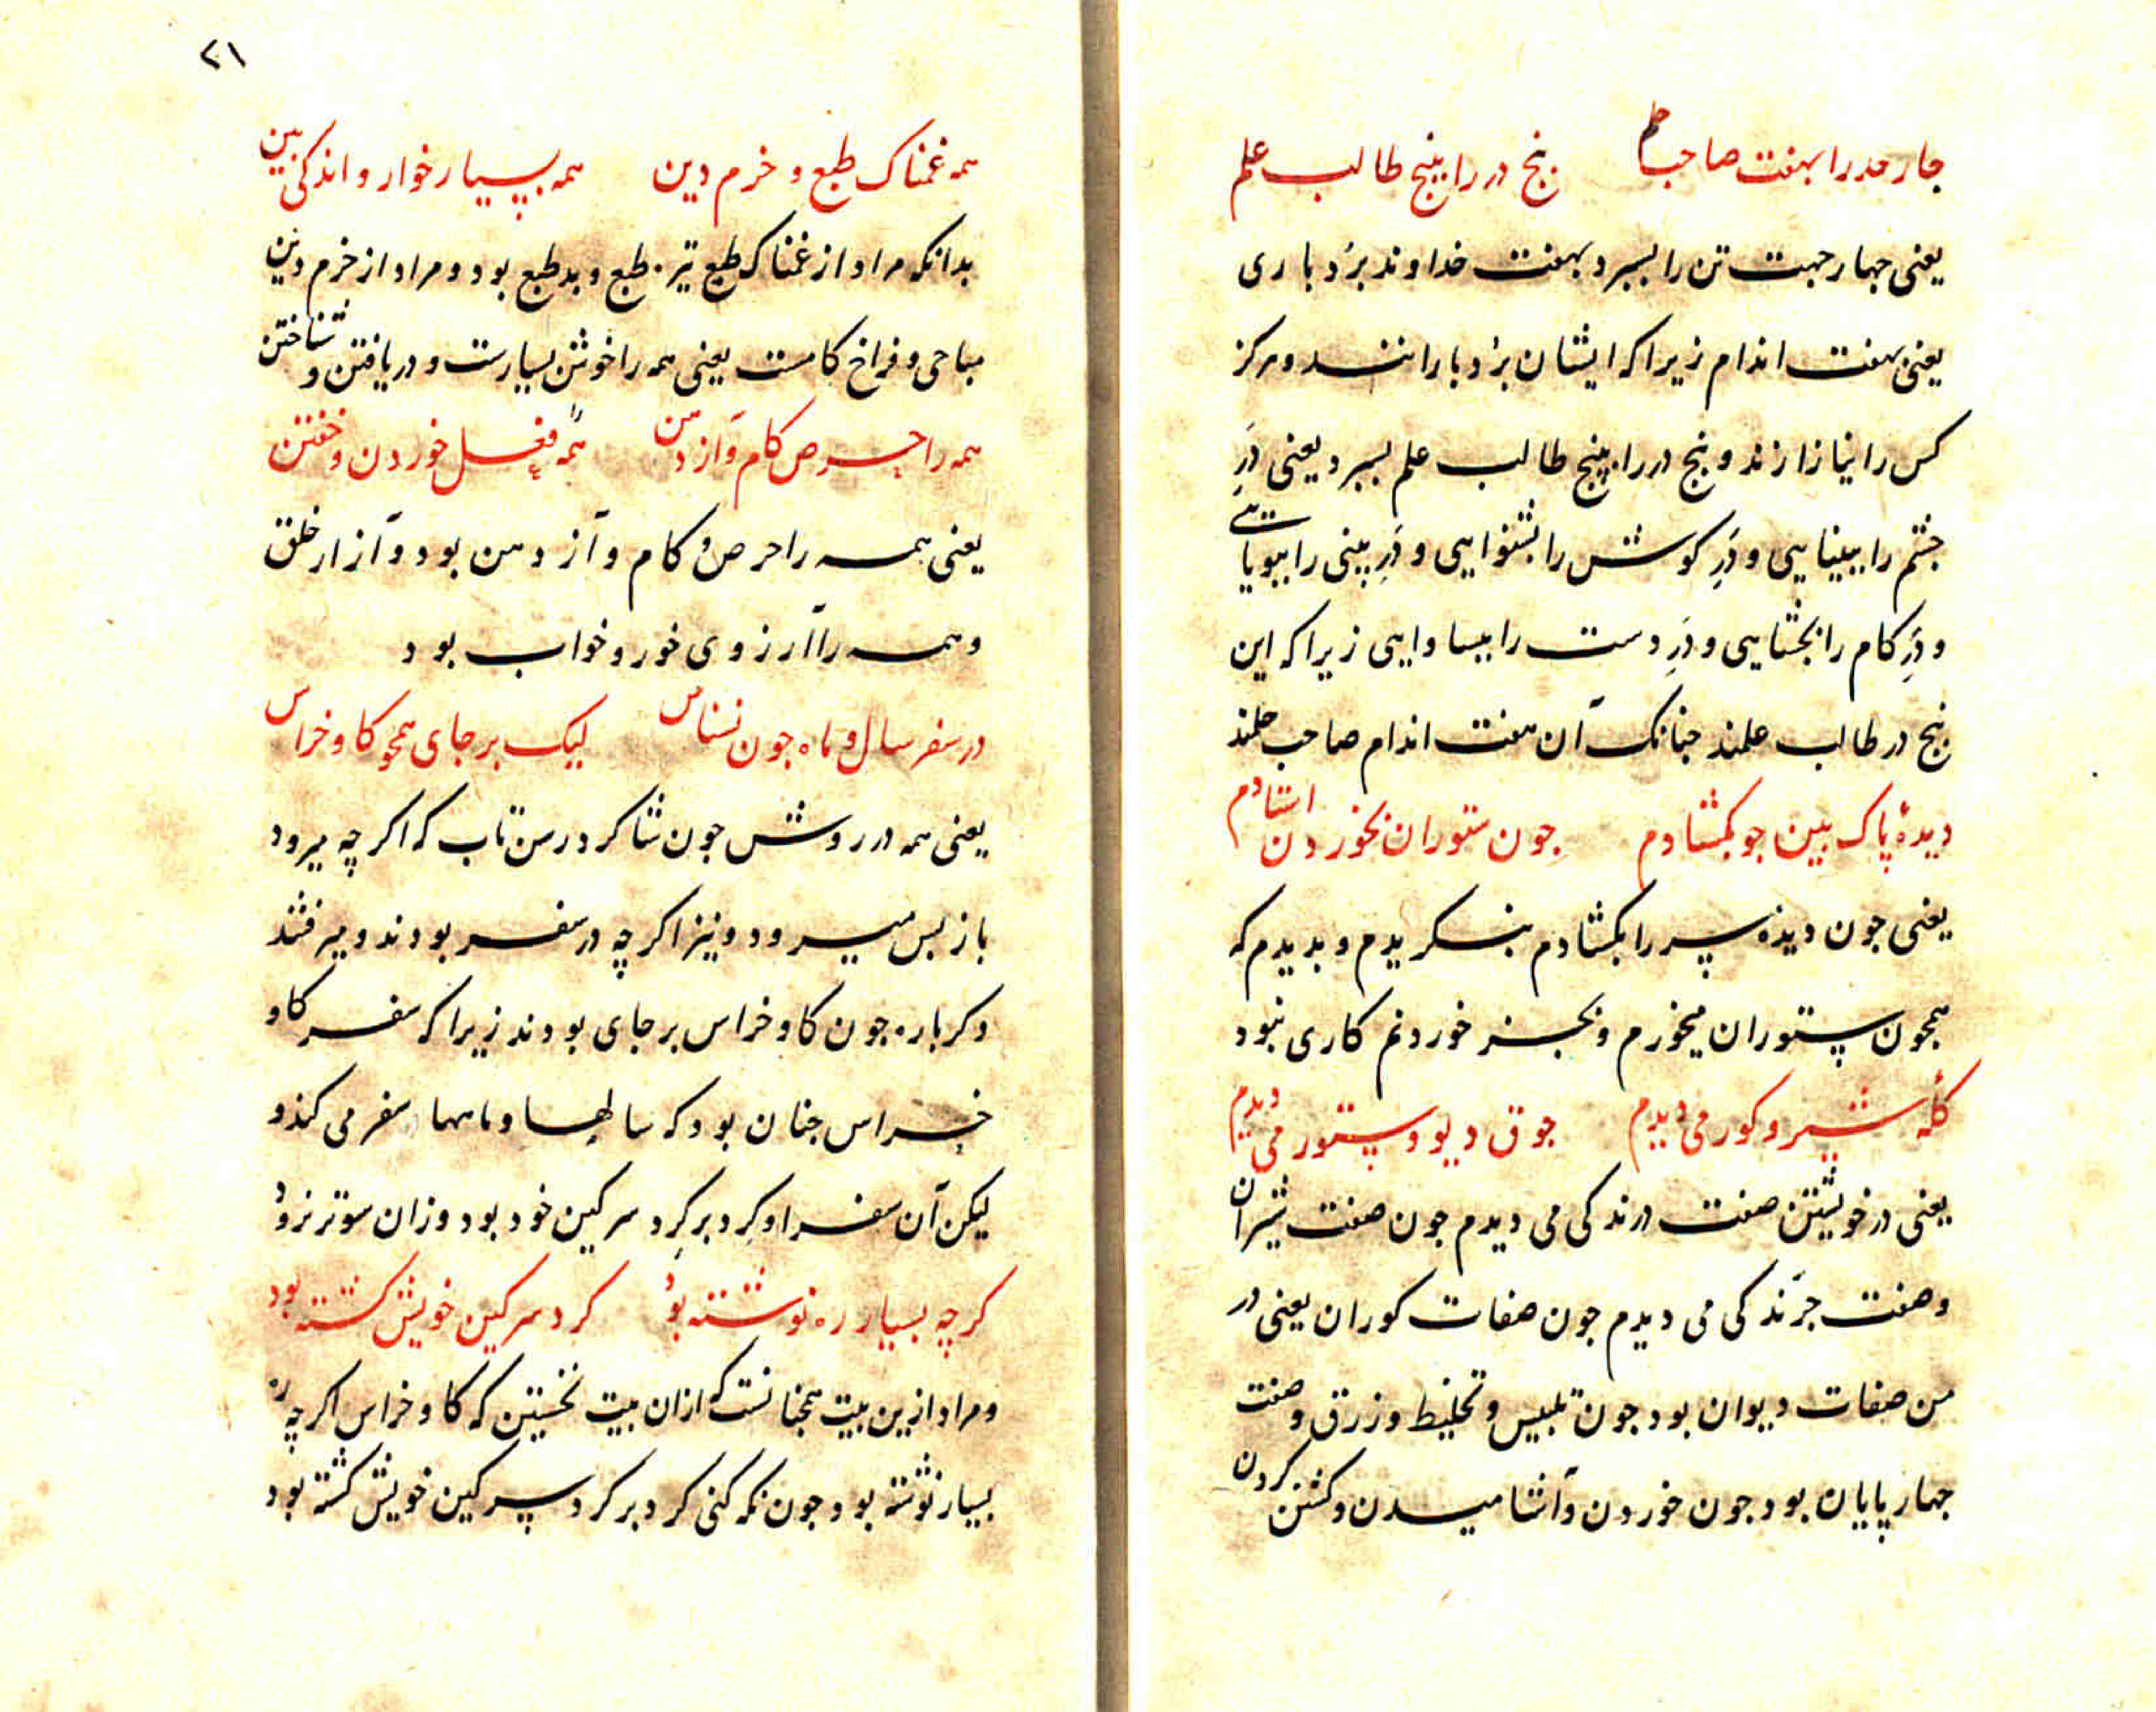 چار حد را بهفت صاحب حلم پنج در را بپنج طالب علم
یعنی جهار جهت تن را بسپرد بهفت خداوند بردباری
یعنی بهفت اندام زیرا که ایشان بردبارانند و هرکز
کس را نیازارند و پنج در را بپنج طالب علم بسپرد یعنی دَرِ
جشم را ببینایی و دَرِ کوش را بشنوایی و دَرِ بینی را ببویایی
و دَرِ کام را بجشایی و دَرِ دست را ببساوایی زیرا که این
پنج در طالب علمند جنانک آن هفت اندام صاحب حلمند
دیدهٔ پاک بین جو بکشادم جون ستوران بخوردن استادم
یعنی جون دیدهٔ سر را بکشادم بنکریدم و بدیدم که
همجون ستوران میخورم و بجز خوردنم کاری نبود
کلهٔ شیر و کور می دیدم جوق دیو و ستور می دیدم
یعنی در خویشتن صفت درندکی می دیدم جون صفت شیران
و صفت جَرَندکی می دیدم جون صفات کوران یعنی در
من صفات دیوان بود جون تلبیس و تخلیط و زرق و صفت
جهارپایان بود جون خوردن و آشامیدن و کشتن کردن
۲۱
همه غمناک طبع و خرم دین همه بسیار خوار و اندکی بین
بدانکه مراد از غمناک طبع تیره طبع و بد طبع بود و مراد از خرم دین
مباحی و فراخ کامست یعنی همه را خوشتن بسیارست و دریافتن و شناختن
همه را حرص کام و آز دهن همه فعل خوردن و خفتن
یعنی همه را حرص و کام و آز دهن بود و آزار خلق
و همه را آرزوی خور و خواب بود
در سفر سال و ماه جون نسناس لیک بر جای همجو کاو خراس
یعنی همه در روش جون شاکرد رسن تاب که اکر چه میرود
باز پس میرود و نیز اکر چه در سفر بودند و میرفتند
دکرباره جون کاو خراس بر جای بودند زیرا که سفر کاو
خراس جنان بود که سالها و ماهها سفر می کند و
لیکن آن سفر او کِرد بر کِرد سرکین خود بود و زان سوتر نرود
کر چه بسیار ره نوشته بود کرد سرکین خویش کشته بود
و مراد ازین بیت همجنانست که ازان بیت نخستین که کاو خراس اکر چه ره
بسیار نوشته بود جون نکه کنی کرد بر کرد سرکین خویش کشته بود